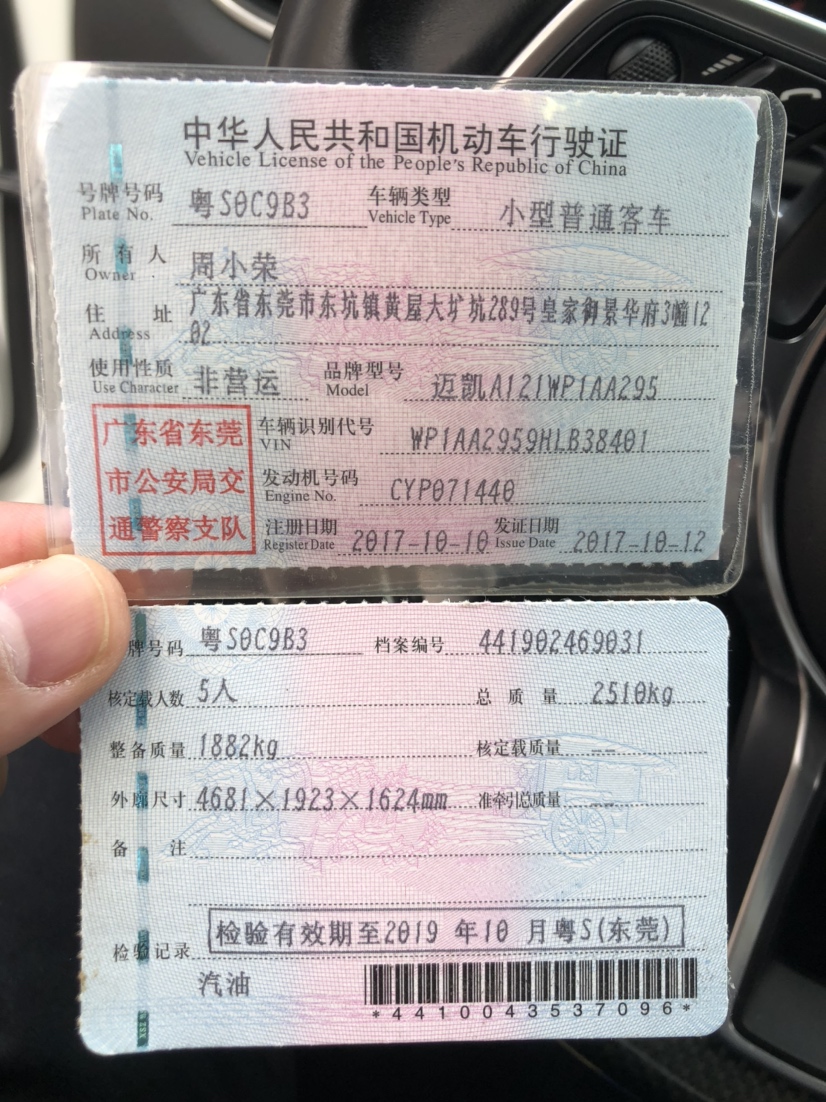 中华人民共和国机动车行驶证
Vehicle License of the People's Republic of China
号牌号码 粤S0C9B3 车辆类型 小型普通客车
Plate No. Vehicle Type
所有人 周小荣
Owner
住址 广东省东莞市东坑镇黄屋大圹坑289号皇家御景华府3幢12
Address 02
使用性质 非营运 品牌型号 迈凯A121WP1AA295
Use Character Model
广东省东莞
市公安局交
通警察支队
车辆识别代号 WP1AA2959HLB38401
VIN
发动机号码 CYP071440
Engine No.
注册日期 2017-10-10 发证日期 2017-10-12
Register Date Issue Date
牌号码 粤S0C9B3 档案编号 441902469031
核定载人数 5人 总质量 2510kg
整备质量 1882kg 核定载质量 --
外廓尺寸 4681×1923×1624mm 准牵引总质量 --
备注
检验记录 检验有效期至2019 年10 月粤S(东莞)
汽油
*4410043537096*